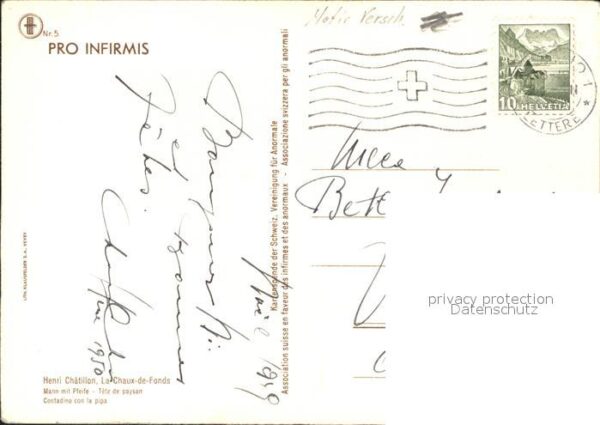 Nr. 5
PRO INFIRMIS
Motiv Versch
10 HELVETIA
LETTERE
Bonjour
et bonnes
Fêtes.
Noël 1949
1950
Kartenspende der Schweiz. Vereinigung für Anormale
Association suisse en faveur des infirmes et des anormaux - Associazione svizzera per gli anormali
LITH. KLAUSFELDER S.A. VEVEY
privacy protection
Datenschutz
Henri Châtillon, La Chaux-de-Fonds
Mann mit Pfeife - Tête de paysan
Contadino con la pipa